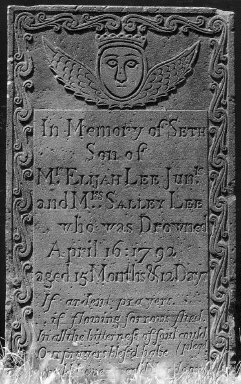 In Memory of SETH
Son of
Mr. ELIJAH LEE Junr.
and Mrs. SALLEY LEE
who was Drowned
April 16: 1792
aged 15 Months & 12 Days
If ardent prayers
if flowing sorrows
In all the bitterness of soul could
plead
Our prayers